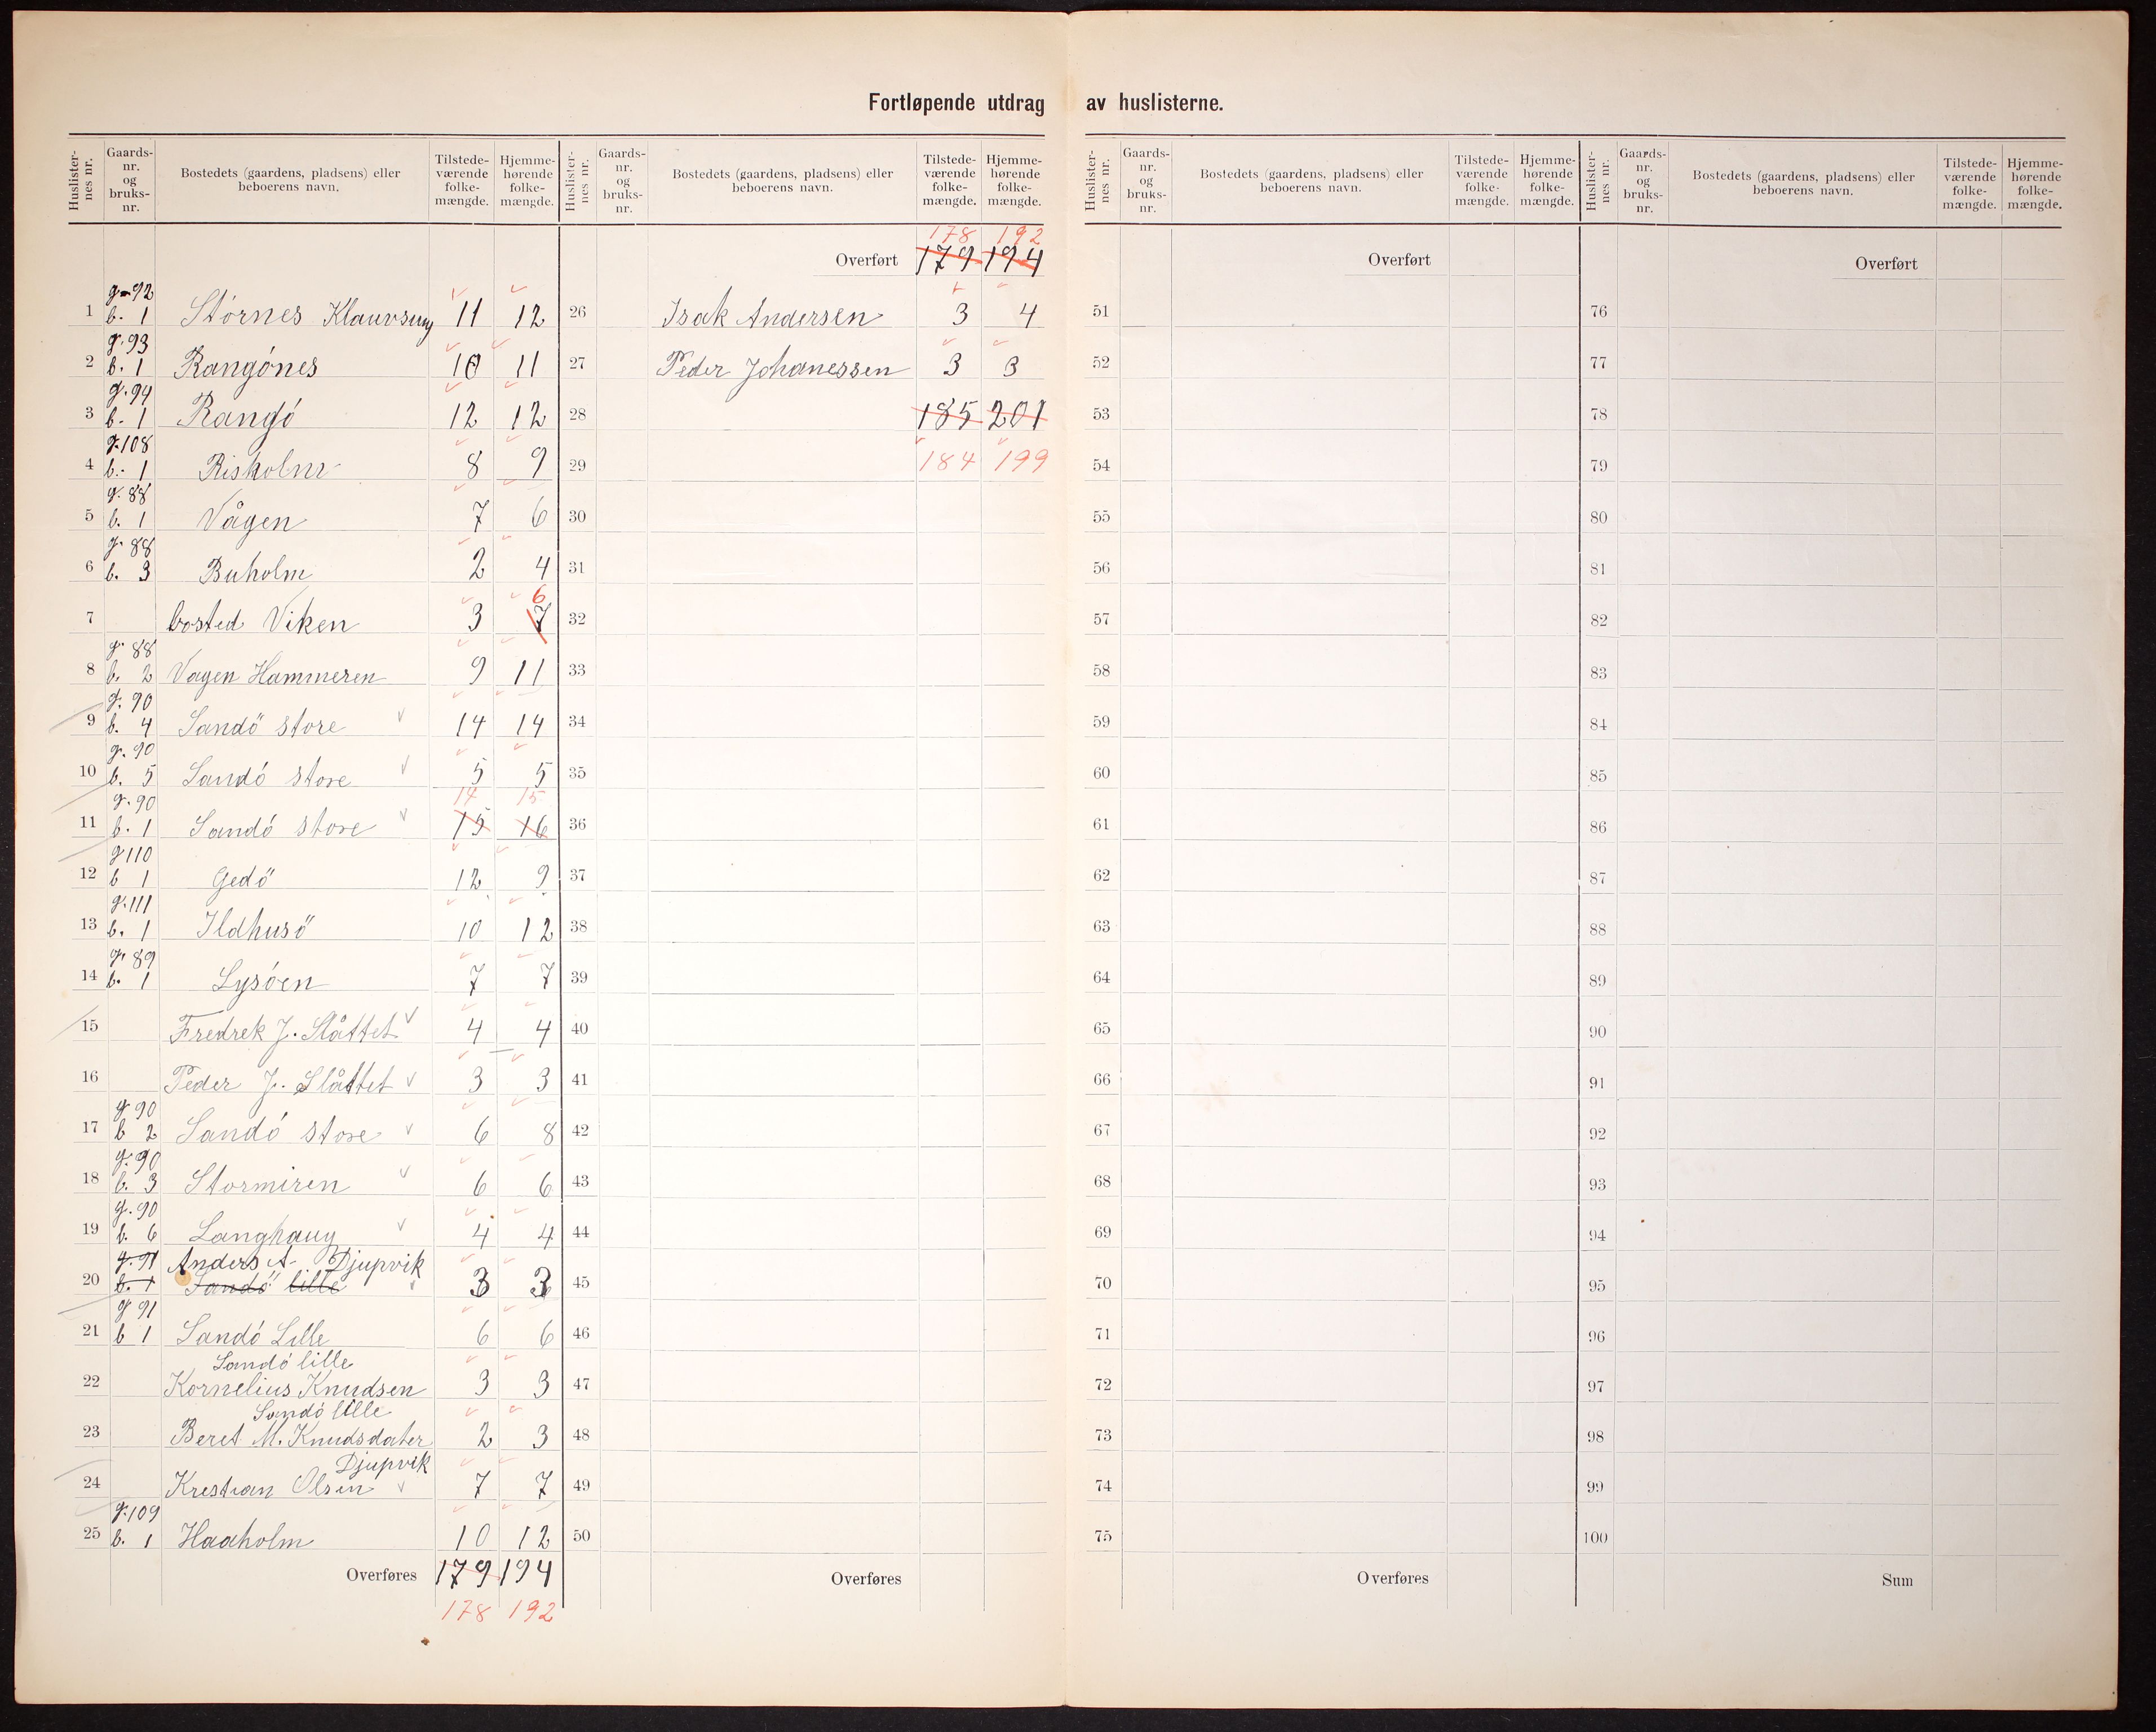 Fortløpende utdrag av huslisterne.
Huslisternes nr. Gaards-nr. og bruks-nr. Bostedets (gaardens, pladsens) eller beboerens navn. Tilstede-værende folke-mængde. Hjemme-hørende folke-mængde.
g-92
1 b. 1 Störnes 11 12
g. 93
2 b. 1 Rangónes 10 11
g. 94
3 b. 1 Rangó 12 12
g. 108
4 b. 1 Risholm 8 9
g. 88
5 b. 1 Vågen 7 6
g. 88
6 b. 3 Buholm 2 4
6
7 bosted Viken 3 7
g. 88
8 b. 2 Vagen Hammeren 9 11
g. 90
9 b. 4 Sandö store 14 14
g. 90
10 b. 5 Sandó store 5 5
g. 90 14 15
11 b. 1 Sandó store 15 16
g 110
12 b 1 Gedö 12 9
g. 111
13 b. 1 Ildhusö 10 12
g. 89
14 b. 1 Lysóen 7 7
15 Fredrek J. Slåttet 4 4
16 Peder J. Slåttet 3 3
g 90
17 b 2 Sandó store 6 8
g. 90
18 b. 3 Stormiren 6 6
g. 90
19 b. 6 Langhaug 4 4
g. 91 Anders A. Djupvik
20 b. 1 Sandö lille 3 3
g 91
21 b 1 Sandó Lille 6 6
Sandó lille
22 Kornelius Knudsen 3 3
Sandó lille
23 Beret M. Knudsdater 2 3
Djupvik
24 Krestian Olsen 7 7
g. 109
25 b. 1 Haaholm 10 12
Overføres 179 194
178 192
Huslisternes nr. Gaards-nr. og bruks-nr. Bostedets (gaardens, pladsens) eller beboerens navn. Tilstede-værende folke-mængde. Hjemme-hørende folke-mængde.
178 192
Overført 179 194
26 Isak Andersen 3 4
27 Peder Johanessen 3 3
28 185 201
29 184 199
30
31
32
33
34
35
36
37
38
39
40
41
42
43
44
45
46
47
48
49
50
Overføres
Huslisternes nr. Gaards-nr. og bruks-nr. Bostedets (gaardens, pladsens) eller beboerens navn. Tilstede-værende folke-mængde. Hjemme-hørende folke-mængde.
Overført
51
52
53
54
55
56
57
58
59
60
61
62
63
64
65
66
67
68
69
70
71
72
73
74
75
Overføres
Huslisternes nr. Gaards-nr. og bruks-nr. Bostedets (gaardens, pladsens) eller beboerens navn. Tilstede-værende folke-mængde. Hjemme-hørende folke-mængde.
Overført
76
77
78
79
80
81
82
83
84
85
86
87
88
89
90
91
92
93
94
95
96
97
98
99
100
Sum